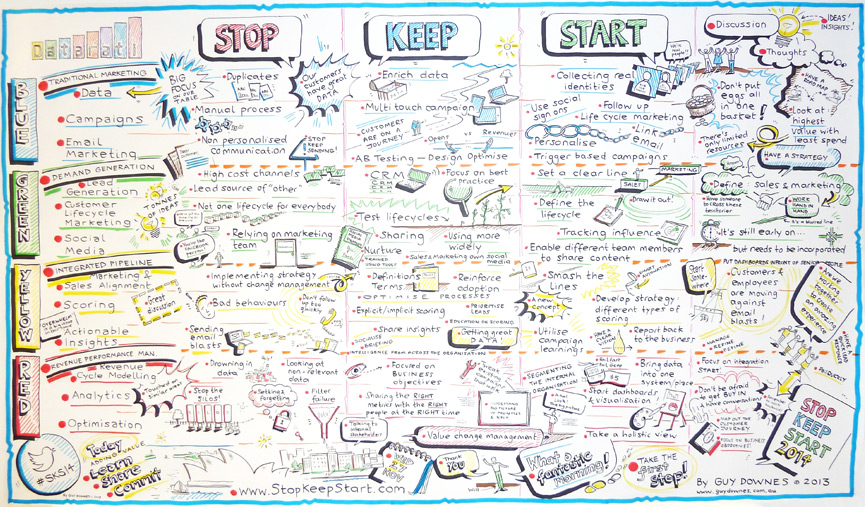 Datarati
STOP
KEEP
START
Discussion
IDEAS!
INSIGHTS!
Thoughts
BLUE
TRADITIONAL MARKETING
Data
Campaigns
Email
Marketing
BIG
FOCUS
ON OUR
TABLE
Duplicates
Our
customers
have great
DATA
Manual process
Non personalised
communication
STOP
KEEP
SENDING!
Enrich data
Multi touch campaign
CUSTOMERS
ARE ON A
JOURNEY
Opens
vs
Revenue?
AB Testing - Design Optimise
Collecting real
identities
Use social
sign ons
Follow up
Life cycle marketing
Personalise
Link
email
Trigger based campaigns
Don't put
eggs all
in one
basket!
There's
only limited
resources
HAVE A
MIND MAP
Look at
highest
value with
least spend
HAVE A STRATEGY
GREEN
DEMAND GENERATION
Lead
Generation
Customer
Lifecycle
Marketing
Social
Media
TONNES
OF IDEAS
High cost channels
Lead source of "other"
Not one lifecycle for everybody
Relying on marketing
team
CRM
Focus on best
practice
Test lifecycles
Sharing
Using more
widely
Nurture
Sales & Marketing own social
Set a clear line
SALES
MARKETING
Define the
lifecycle
Draw it out!
Tracking influence
Enable different team members
to share content
Define: sales & marketing
WORK
HAND IN
HAND
It's still early on...
but needs to be incorporated
YELLOW
INTEGRATED PIPELINE
Marketing &
Sales Alignment
Scoring
Actionable
Insights
Great
discussion
Implementing strategy
without change management
Bad behaviours
Don't follow
up too
quickly
Sending
email
blasts
Definitions
Terms
Reinforce
adoption
OPTIMISE PROCESSES
Explicit/implicit scoring
PRIORITISE
LEADS
EDUCATION ON SCORING
Share insights
SOCIALISE
BRIEFING
Getting great
DATA!
INTELLIGENCE FROM ACROSS THE ORGANISATION
Smash the
Lines
A new
concept
Develop strategy -
different types of
scoring
Utilise
campaign
learning
Report back to
the business
PUT DASHBOARDS IN FRONT OF SENIOR PEOPLE
Start
somewhere
Customers &
employees
are moving
against
email
blasts!
RED
REVENUE PERFORMANCE MAN.
Revenue
Cycle Modelling
Analytics
Optimisation
Drowning in
data
Looking at
non-relevant
data
Stop the
SILOS!
Setting &
forgetting
Filter
failure
Focused on
BUSINESS
objectives
Sharing the RIGHT
metrics with the RIGHT
people at the RIGHT time
Talking to
internal
stakeholders
Value change management
SEGMENTING
THE INTERNAL
ORGANISATION
Fail fast
Bring data
into one
system/place
Start dashboards
& visualisation
Take a holistic view
Focus on integration
START
Don't be afraid
to get BUY IN
& have conversations
MAP OUT THE
CUSTOMER
JOURNEY
FOCUS ON BUSINESS
OBJECTIVES
STOP
KEEP
START
2014
#SKS14
Today
ADDING VALUE
Learn
Share
Commit
www.StopKeepStart.com
NOV
Thank
you
What a
fantastic
morning!
TAKE THE
first
step!
BY GUY DOWNES © 2013
www.guydownes.com.au